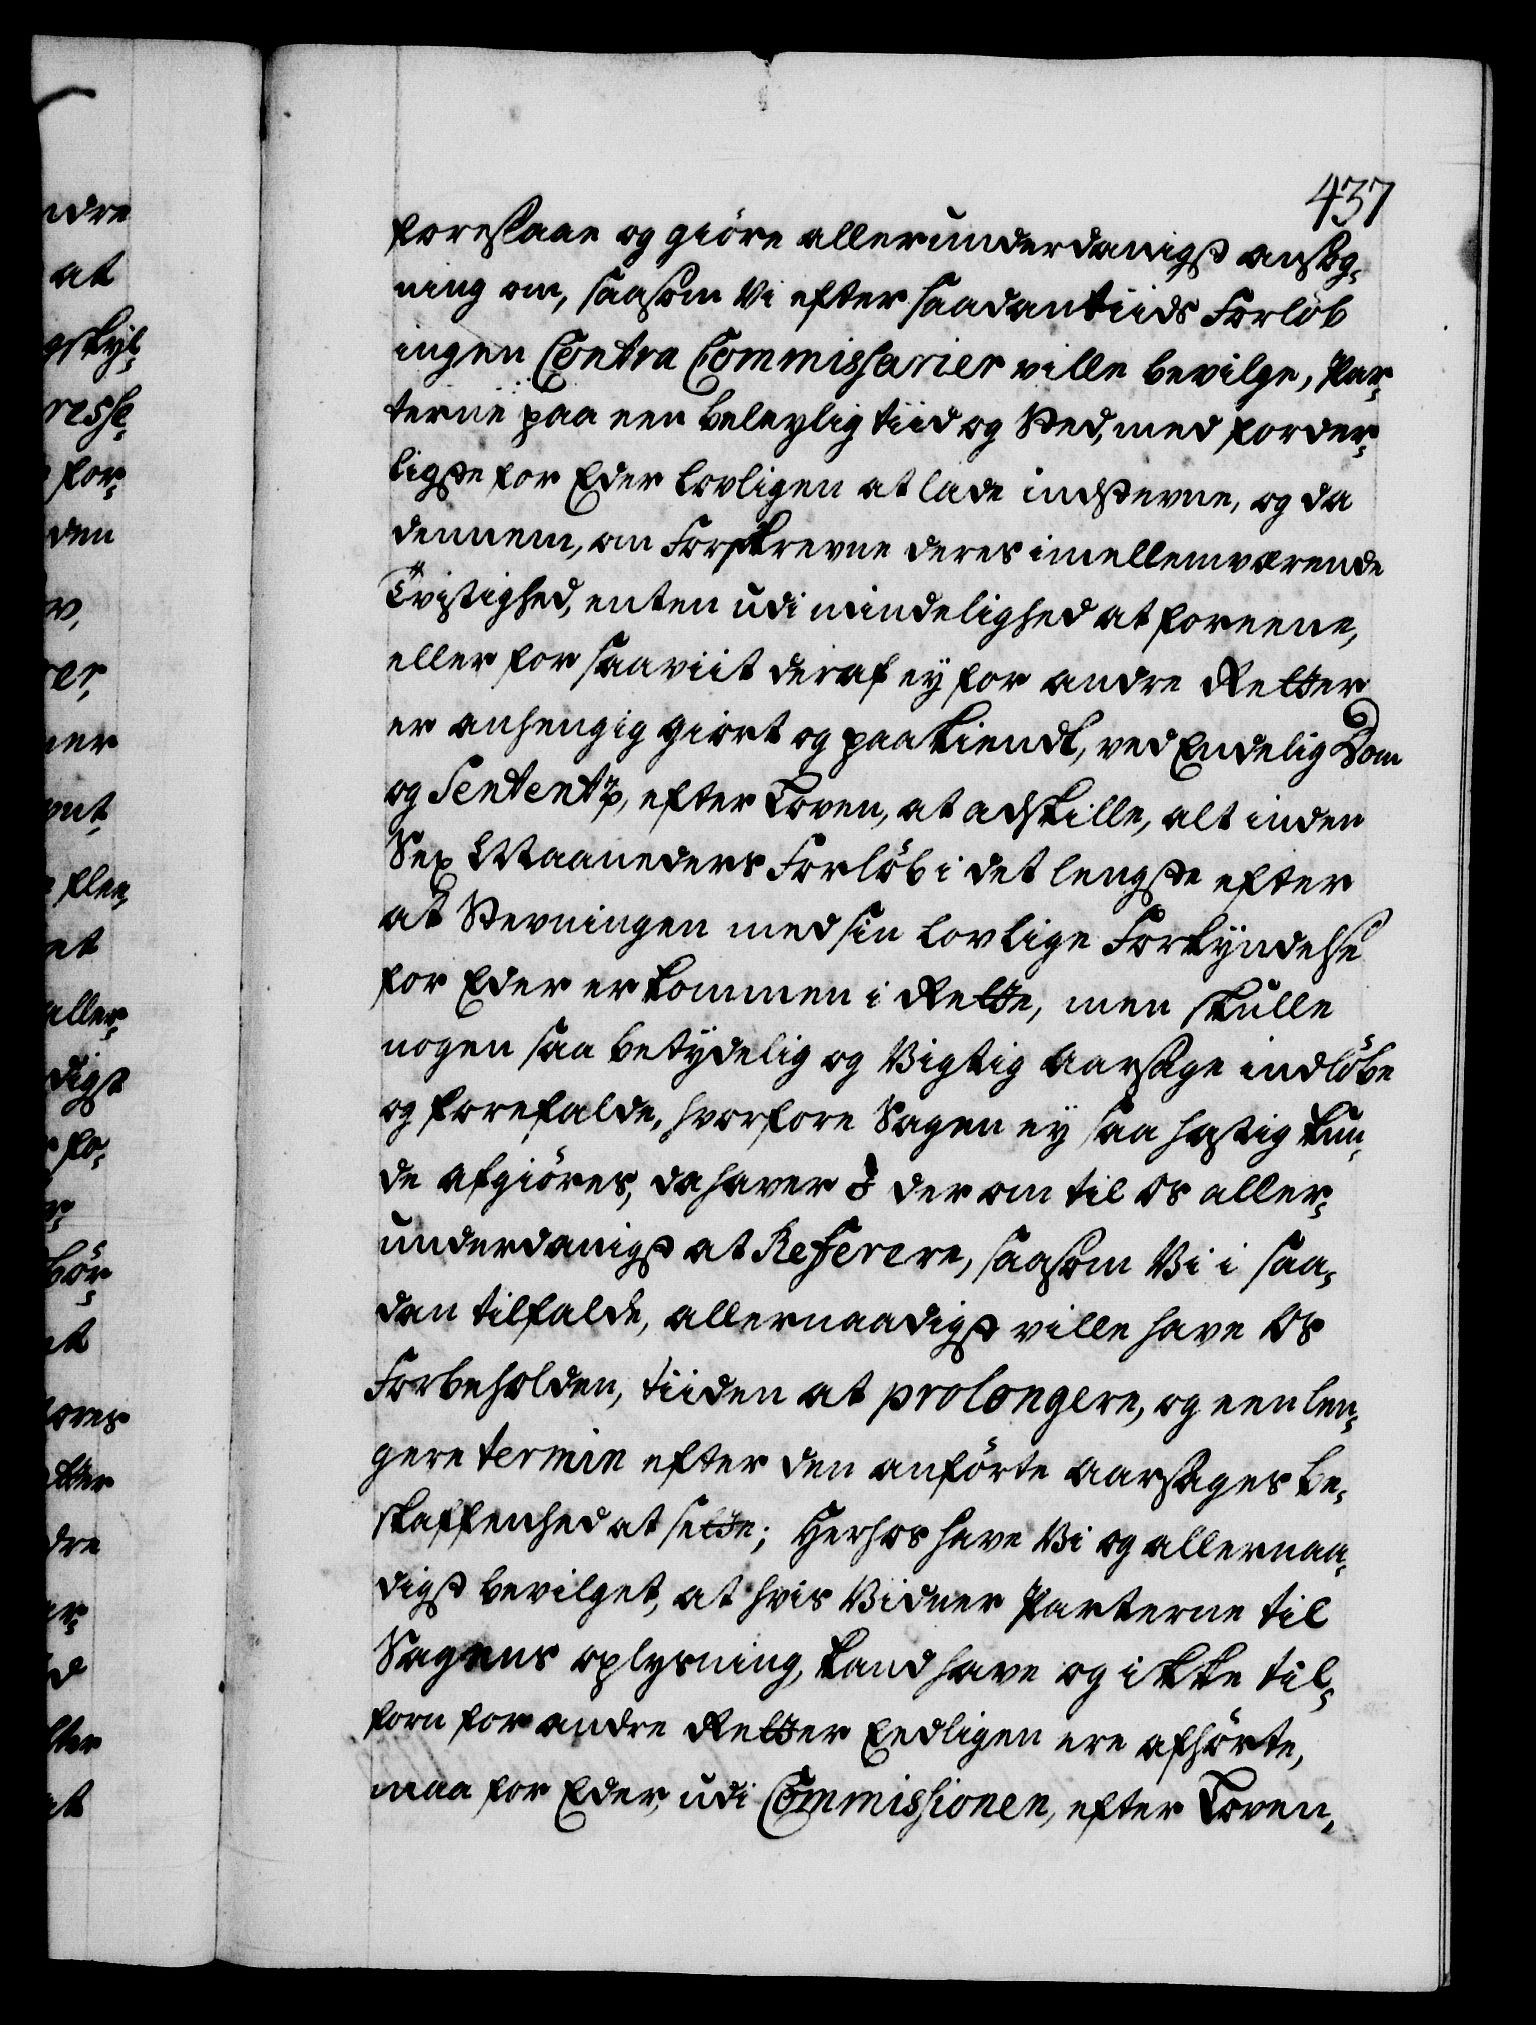 437
foreslaae og giöre allerunderdanigst ansøg¬
ning om, saasom Vi efter saadan tiids Forlöb
ingen Contra Commissarier ville bevilge, Par¬
terne paa een beleylig tiid og Sted, med forder¬
ligste for Eder lovligen at lade indstevne, og da
dennem, om Forskrevne deres imellemværende
Tvistighed, enten udi mindelighed at foreene,
eller for saaviit deraf ey for andre Retter
er anhengig giort og paakiendt, ved Endelig Dom
og Sententz, efter Loven, at adskille, alt inden
Sex Maaneders Forlöb i det lengste efter
at Stevningen med sin lovlige Forkyndelse
for Eder er kommen i Rette, men skulle
nogen saa betydelig og Vigtig aarsage indlöbe
og forefalde, hvorfore Sagen ey saa hastig kun¬
de afgiöres, da haver I der om til Os aller¬
underdanigst at Referere, saasom Vi i saa¬
dan tilfalde, allernaadigst ville have Os
Forbeholden, tiiden at prolongere, og een len¬
gere termin efter den anförte aarsages be¬
skaffenhed at sette; Herhos have Vi og allernaa¬
digst bevilget, at hvis Vidner Parterne til
Sagens oplysning, kand have og ikke til¬
forn for andre Retter Eedligen ere afhörte,
maa for Eder, udi Commissionen, efter Loven,
ndre
at
gskyl¬
resse¬
for¬
den
v,
rer,
ner
flee,
et
aller¬
digst
fo¬
r¬
bör¬
at
ores
etter
dre
er¬
d
fter
at